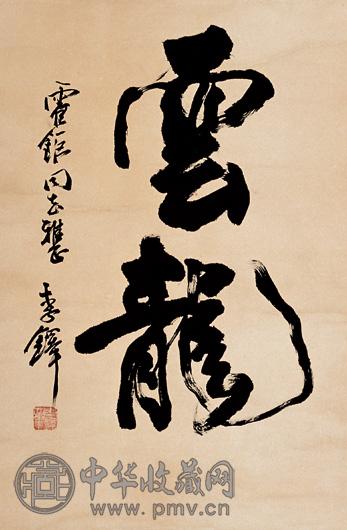 雲龍
霍鉅同志雅正
李鐸
中华收藏网
www.pmv.cn